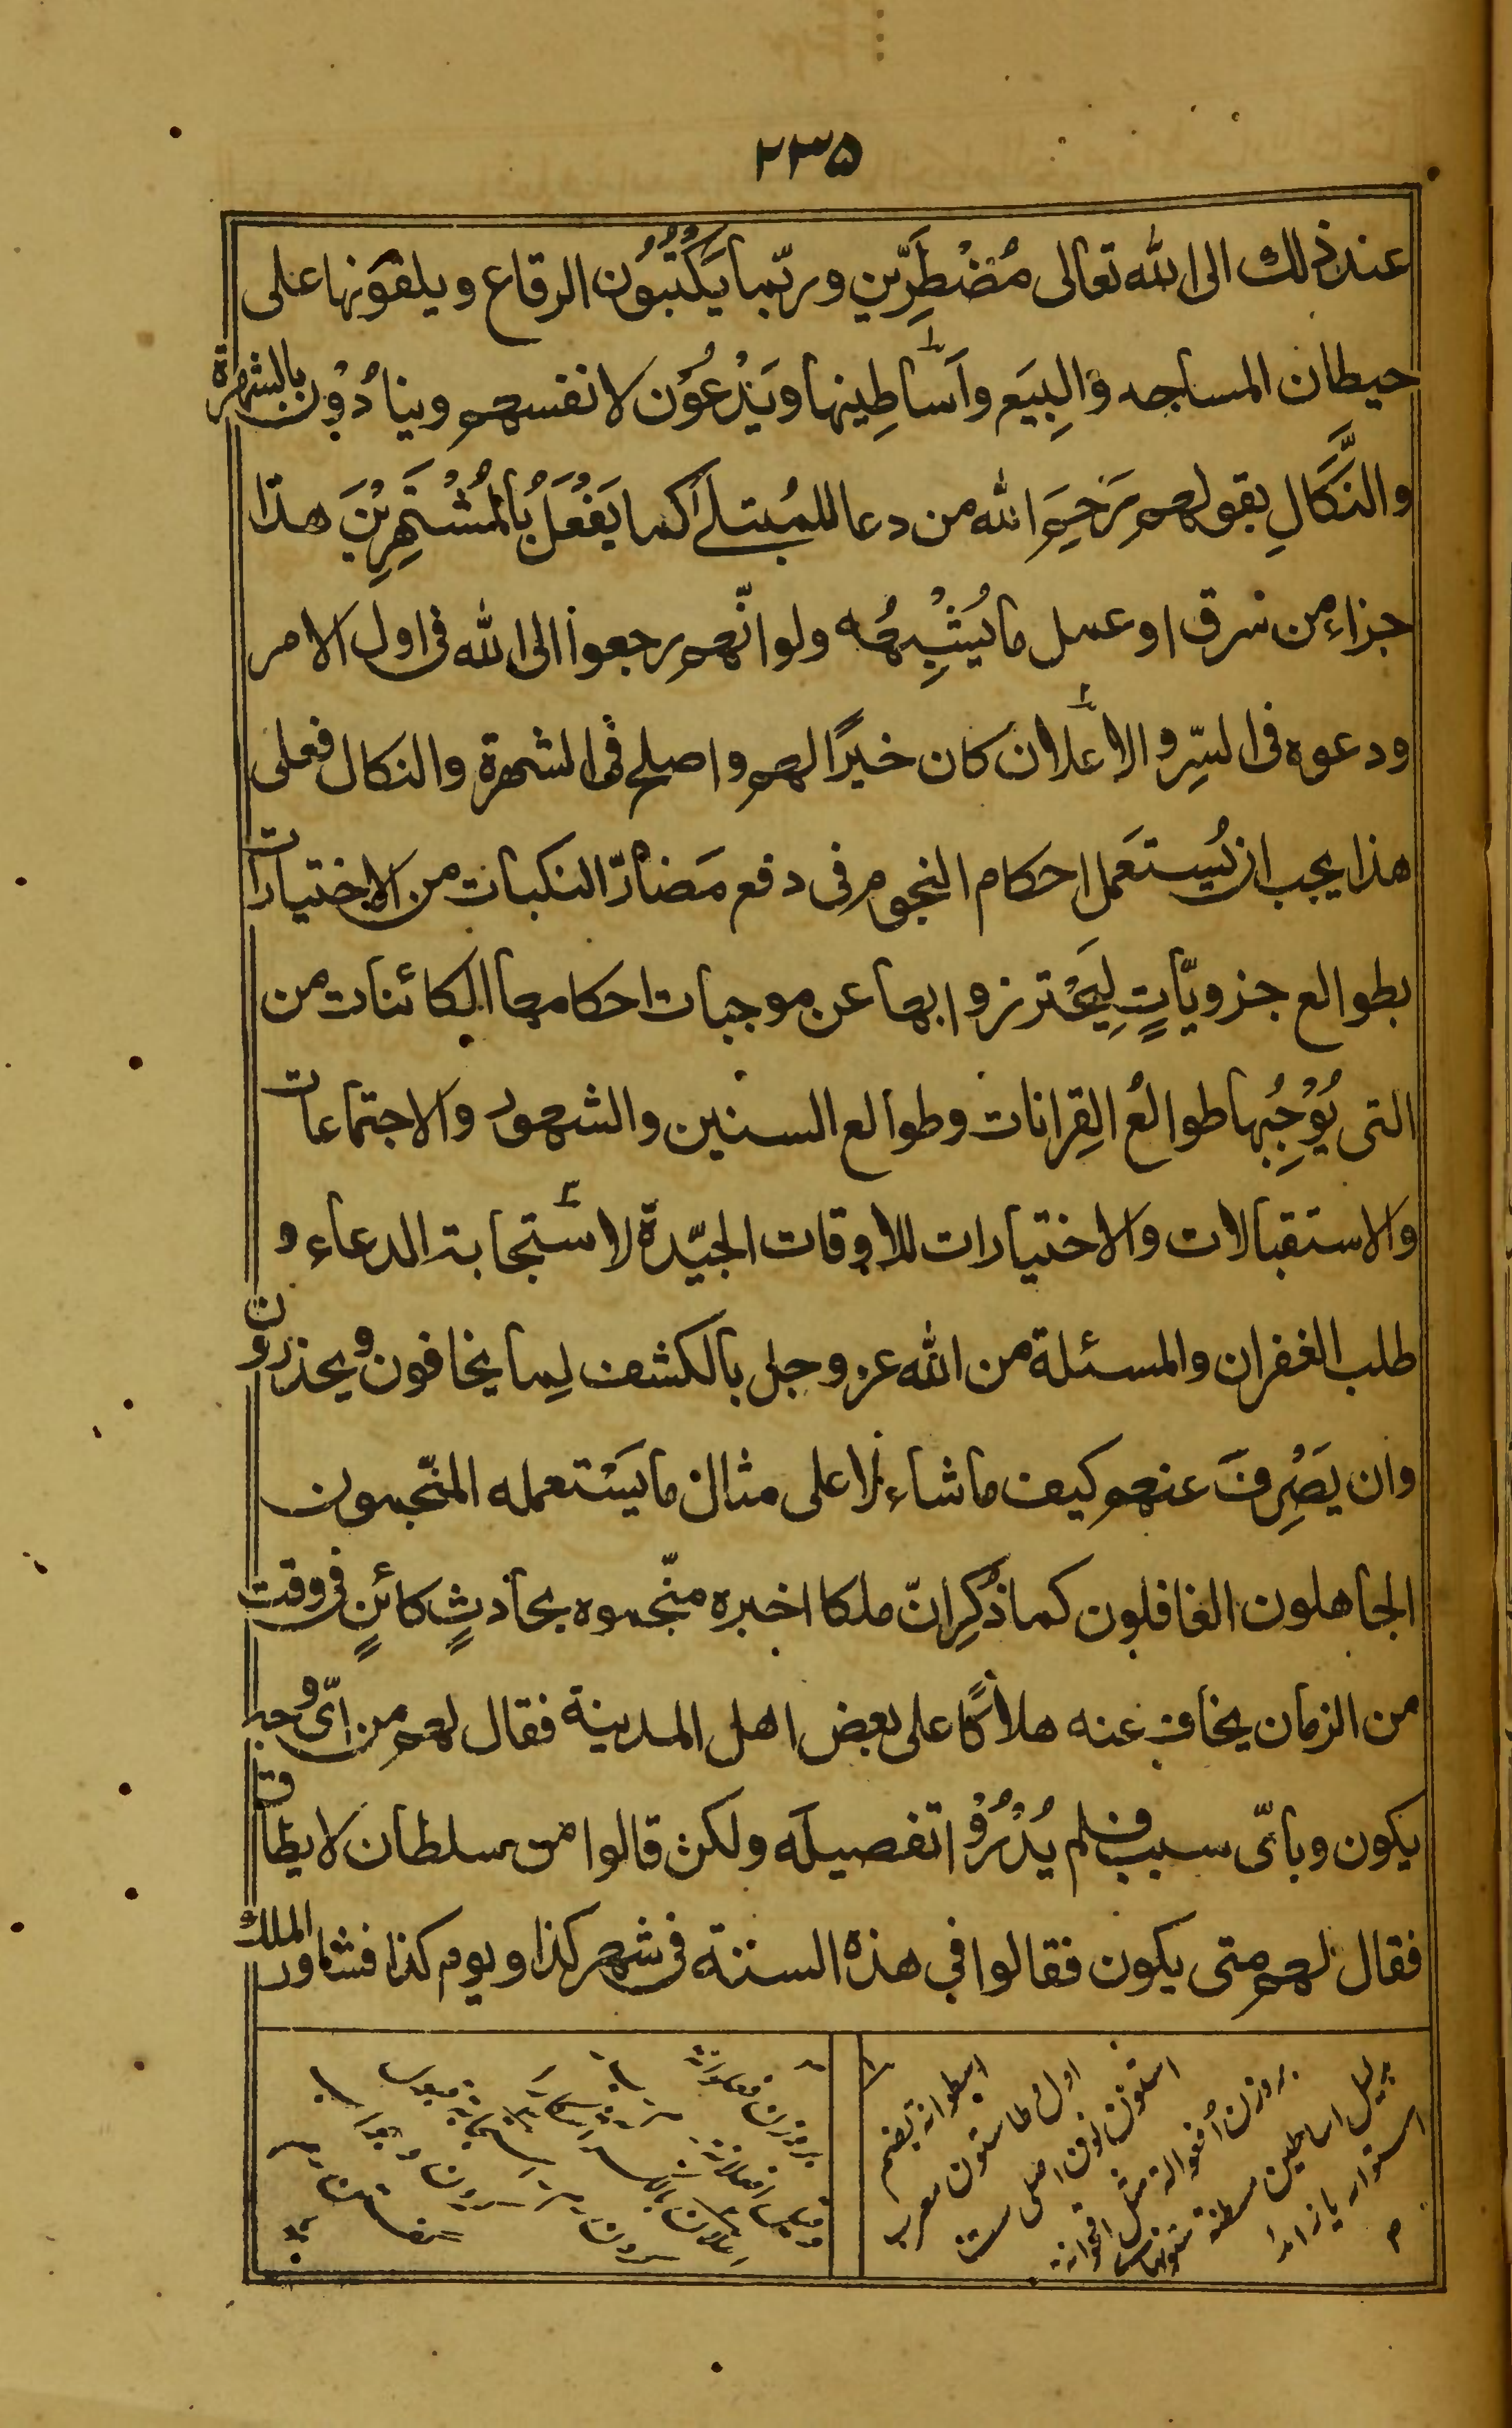 ٢٣٥
عند ذلك الى الله تعالى مُضْطَرِّين وربّما يَكْتُبُوُن الرقاع ويلقونها على
حيطان المساجد والبِيَع وَاَسَاطِينها ويَدْعُوُن لانفسهم وينادُوْن بالشهرة
والنَّكَالِ بقولهم رَحِمَ الله من دعا للمُبتلےٰ كما يَفْعَلُ بُالمُشْتَهِرِيْنَ هذا
جزاء من سرق او عمل ما يُشْبِهُه ولو انّهم رجعوا الى الله فى اول الامر
ودعوه فى السِّر والاعلان كان خيرًا لهم واصلح فى الشهرة والنكال فعلى
هذا يجب ان يُستَعمل احكام النجوم فى دفع مَضارّ النكبات من الاختيارات
بطوالع جزويّاتٍ لِيَحْترزوا بها عن موجبات احكامها الكائنات من
التى يُوْجِبُها طوالعُ القِرانات وطوالع السنين والشهور والاجتماعات
والاستقبالات والاختيارات للاوقات الجيّدة لاستجابة الدعاء و
طلب الغفران والمسئلة من الله عز وجل بالكشف لِما يخافون ويحذرون
وان يَصْرِفَ عنهم كيف ما شاء لا على مثال ما يَسْتعمله المنجّمون
الجاهلون الغافلون كما ذُكِر انّ ملكا اخبره منجّموه بحادثٍ كائنٍ فى وقت
من الزمان يخاف عنه هلاكًا على بعض اهل المدينة فقال لهم من اىّ وجه
يكون وباىّ سبب فلم يُدْرُوْا تفصيله ولكن قالوا من سلطان لا يطاق
فقال لهم متى يكون فقالوا فى هذه السنة فى شهر كذا ويوم كذا فشاور الملك
اسطوانه بضم
اول وطا ستون معرب
استون نون اصلى ست
بروزن اُفعوالة مثل اقحوانة